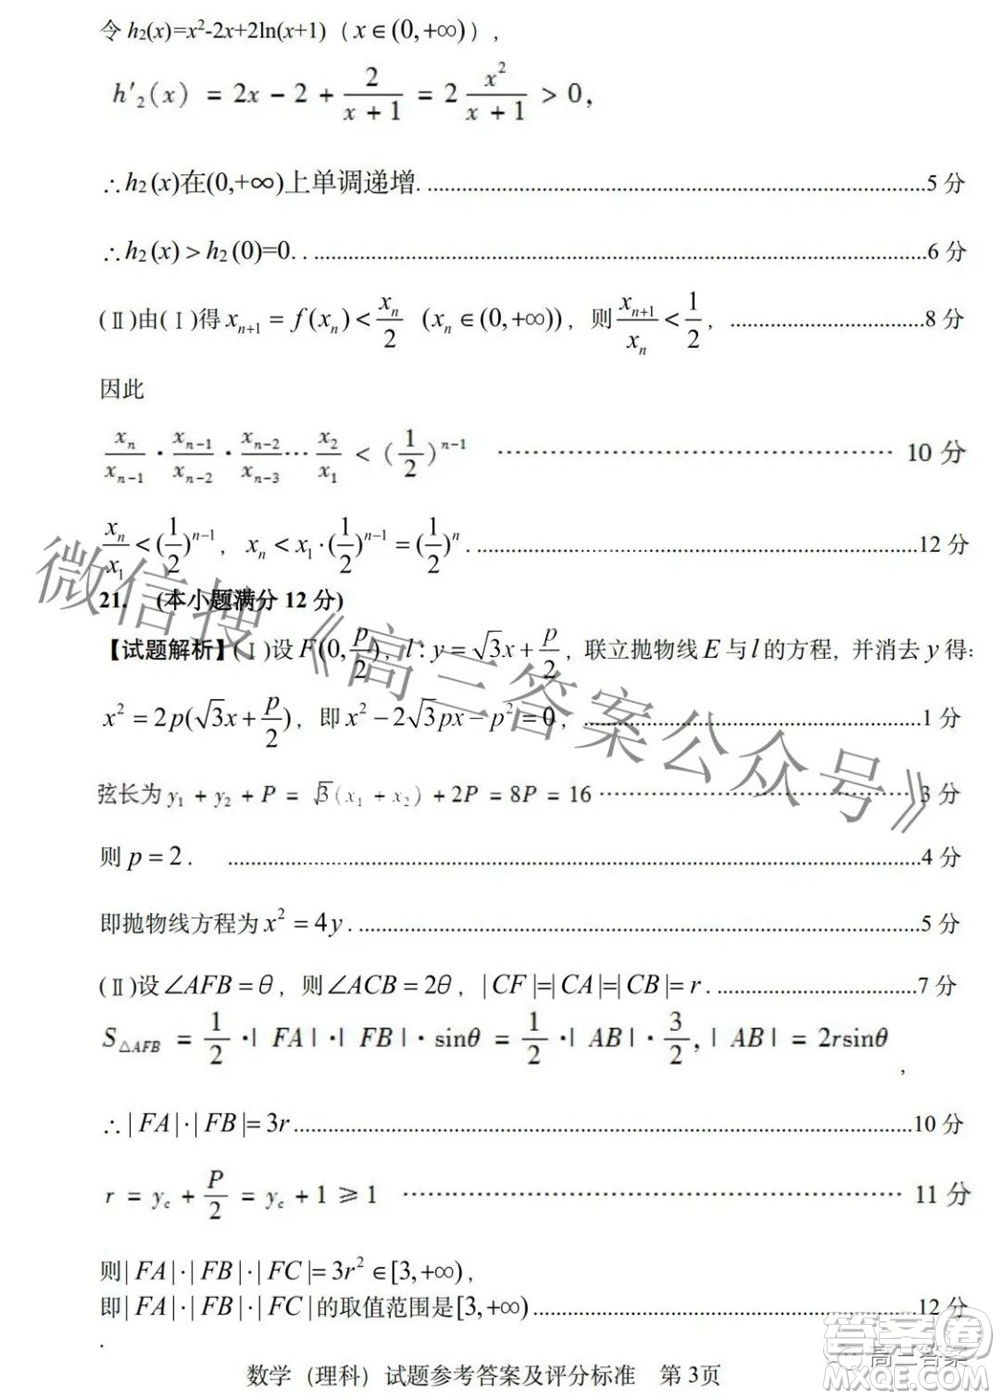 令 h₂(x)=x²-2x+2ln(x+1)（x∈(0,+∞)），
h′₂(x) = 2x − 2 + 2/(x + 1) = 2 x²/(x + 1) > 0,
∴h₂(x)在(0,+∞)上单调递增.……5 分
∴h₂(x)>h₂(0)=0. .……6 分
(Ⅱ)由(Ⅰ)得 xₙ₊₁ = f(xₙ) < xₙ/2 (xₙ∈(0,+∞))，则 xₙ₊₁/xₙ < 1/2，……8 分
因此
xₙ/xₙ₋₁ · xₙ₋₁/xₙ₋₂ · xₙ₋₂/xₙ₋₃ … x₂/x₁ < (1/2)ⁿ⁻¹ ……10 分
xₙ/x₁ < (1/2)ⁿ⁻¹，xₙ < x₁·(1/2)ⁿ⁻¹ = (1/2)ⁿ.……12 分
21. (本小题满分 12 分)
【试题解析】(Ⅰ)设 F(0, p/2)，l : y = √3x + p/2，联立抛物线 E 与 l 的方程，并消去 y 得：
x² = 2p(√3x + p/2)，即 x² − 2√3px − p² = 0，……1 分
弦长为 y₁ + y₂ + P = √3(x₁ + x₂) + 2P = 8P = 16 ……3 分
则 p = 2. ……4 分
即抛物线方程为 x² = 4y.……5 分
(Ⅱ)设 ∠AFB = θ，则 ∠ACB = 2θ，|CF|=|CA|=|CB|= r.……7 分
S△AFB = 1/2 ·| FA |·| FB |· sinθ = 1/2 ·| AB |· 3/2, | AB | = 2rsinθ ,
∴| FA |·| FB |= 3r……10 分
r = y_c + P/2 = y_c + 1 ⩾ 1 ……11 分
则| FA |·| FB |·| FC |= 3r² ∈[3,+∞),
即| FA |·| FB |·| FC |的取值范围是[3,+∞)……12 分
.
数学（理科）试题参考答案及评分标准 第 3页
微信搜《高三答案公众号》
答案圈
高三答案
MXQE.COM